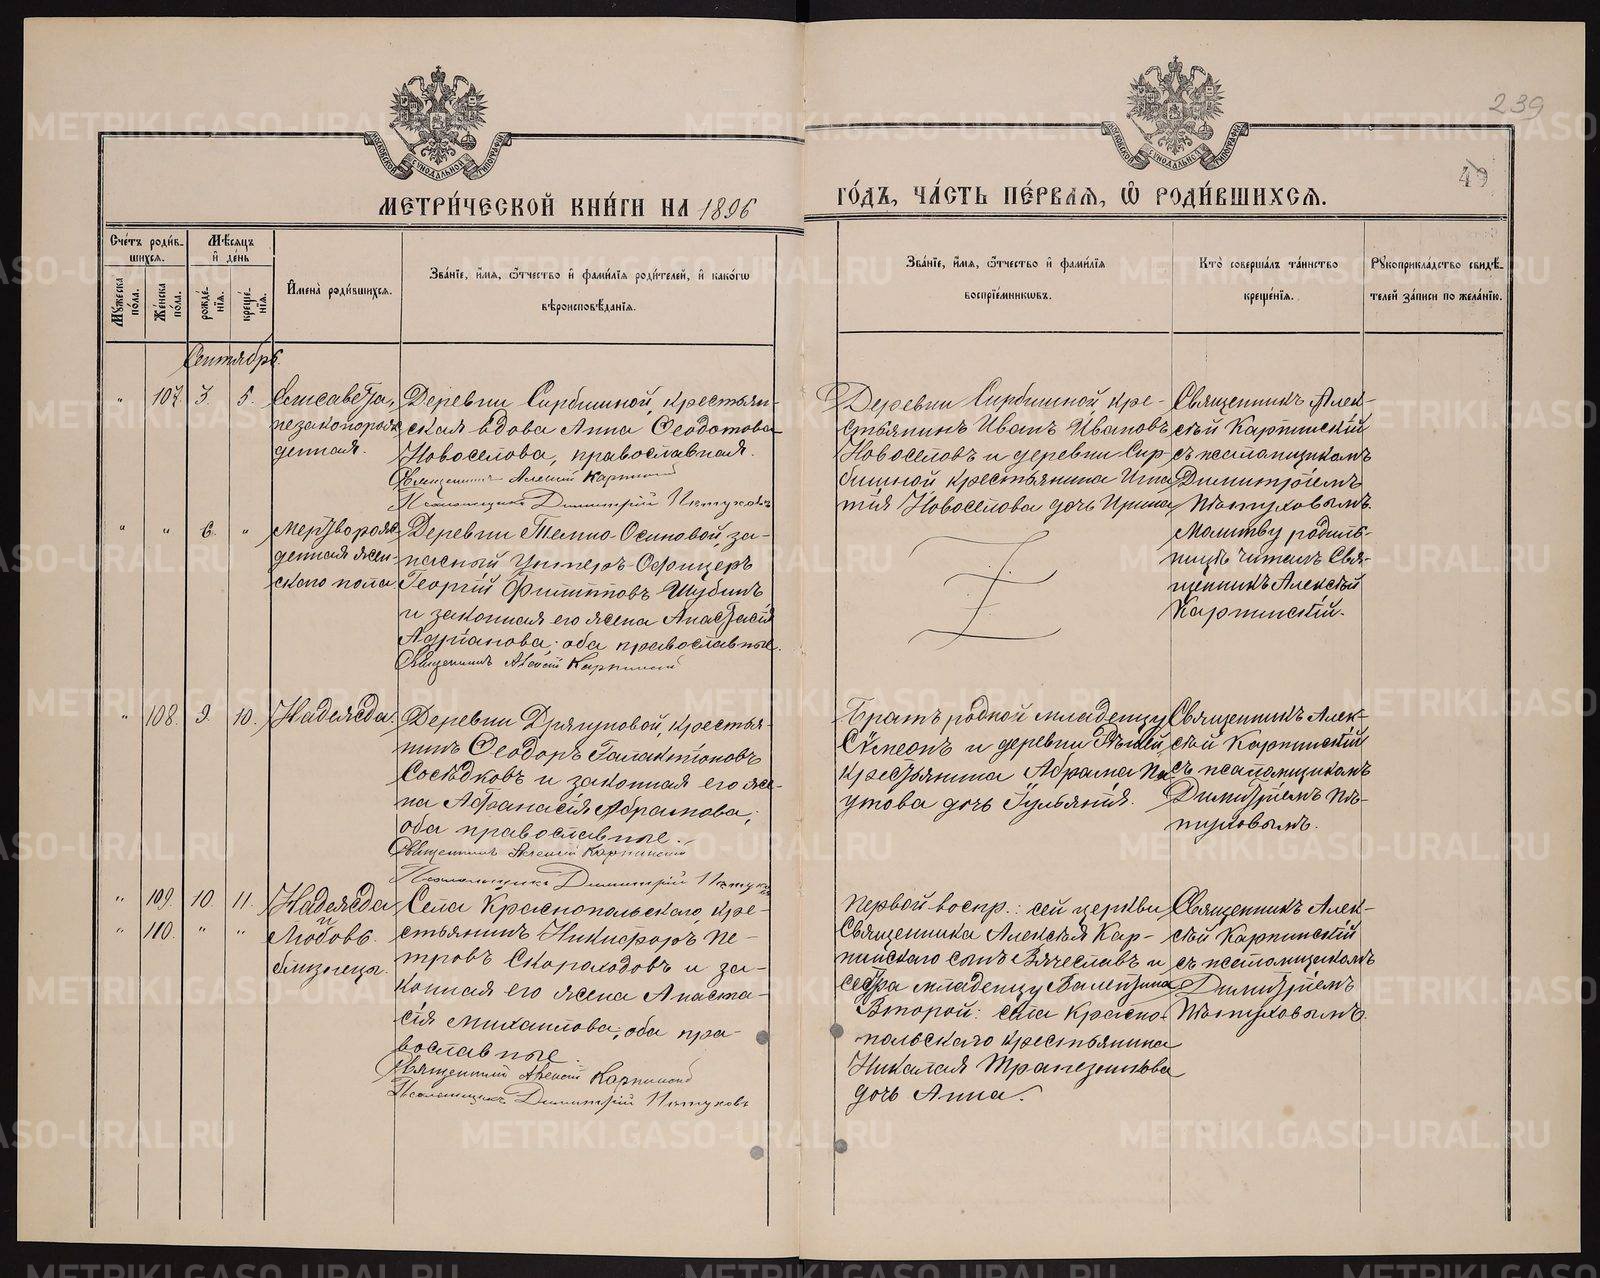 239
49
МОСКОВСКОЙ СѴНОДАЛЬНОЙ ТИПОГРАФІИ
МОСКОВСКОЙ СѴНОДАЛЬНОЙ ТИПОГРАФІИ
МЕТРИ́ЧЕСКОЙ КНИ́ГИ НА 1896
ГО́ДЪ, ЧА́СТЬ ПЕ́РВАѦ, Ѡ҆ РОДИ́ВШИХСѦ.
Сче́тъ роди́в-
шихсѧ.
Мѣ́сѧцъ
и҆ де́нь
Мꙋ́жеска
по́ла.
Же́нска
по́ла.
рожде́-
нїѧ.
креще́-
нїѧ.
И҆мена̀ роди́вшихсѧ.
Зва́нїе, и҆́мѧ, ѻ҆́тчество и҆ фами́лїѧ роди́телей, и҆ како́гѡ
вѣроисповѣ́данїѧ.
Зва́нїе, и҆́мѧ, ѻ҆́тчество и҆ фами́лїѧ
воспрїе́мникѡвъ.
Кто̀ соверша́лъ та́инство
креще́нїѧ.
Рꙋкоприкла́дство свидѣ́-
телей за́писи по жела́нїю.
Сентябрь.
" 107. 3. 5.
Елисавета,
незаконорож-
денная.
Деревни Сирбишной, крестьян-
ская вдова Анна Ѳеодотова
Новоселова, православная.
Священникъ Алексій Карпинскій
Псаломщикъ Димитрій Пѣтуховъ
Деревни Сирбишной кре-
стьянинъ Иванъ Ивановъ
Новоселовъ и деревни Сир-
бишной крестьянина Игна-
тія Новоселова дочь Ирина
Священникъ Алек-
сѣй Карпинскій
съ псаломщикомъ
Димитріемъ
Пѣтуховымъ.
" " 6. "
Мертворож-
денная жен-
скаго пола
Деревни Темно-Осиновой, за-
пасный Унтеръ-Офицеръ
Георгій Филипповъ Шубинъ
и законная его жена Анастасія
Адріанова; оба православные.
Священникъ Алексій Карпинскій
Молитву родиль-
ницѣ читалъ Свя-
щенникъ Алексѣй
Карпинскій.
" 108. 9. 10.
Надежда.
Деревни Дрягуновой, крестья-
нинъ Ѳеодоръ Галактіоновъ
Сосѣдковъ и законная его же-
на Аѳанасія Абрамова;
оба православные.
Священникъ Алексій Карпинскій
Псаломщикъ Димитрій Пѣтуховъ
Братъ родной младенцу
Сѵмеонъ и деревни
крестьянина Абрама Па-
утова дочь Іульянія.
Священникъ Алек-
сѣй Карпинскій
съ псаломщикомъ
Димитріемъ Пѣ-
туховымъ.
" 109. 10. 11.
" 110. " "
Надежда
и
Любовь
близнецы.
Села Краснопольскаго, кре-
стьянинъ Никифоръ Пе-
тровъ Скороходовъ и за-
конная его жена Анаста-
сія Михаилова; оба пра-
вославные.
Священникъ Алексій Карпинскій
Псаломщикъ Димитрій Пѣтуховъ
Первой воспр.: сей церкви
Священника Алексѣя Кар-
пинскаго сынъ Вячеславъ и
сестра младенцу Валентина
Второй: села Красно-
польскаго крестьянина
Николая Трапезникова
дочь Анна.
Священникъ Алек-
сѣй Карпинскій
съ псаломщикомъ
Димитріемъ
Пѣтуховымъ.
METRIKI.GASO-URAL.RU